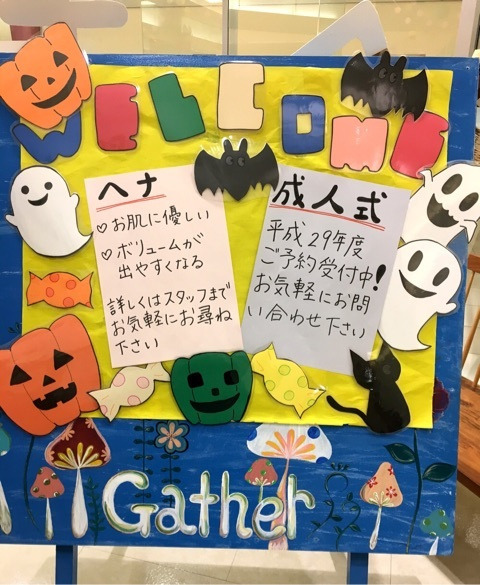 WELCOME
ヘナ
♡お肌に優しい
♡ボリュームが
出やすくなる
詳しくはスタッフまで
お気軽にお尋ね
下さい
成人式
平成29年度
ご予約受付中!
お気軽にお問
い合わせ下さい
Gather